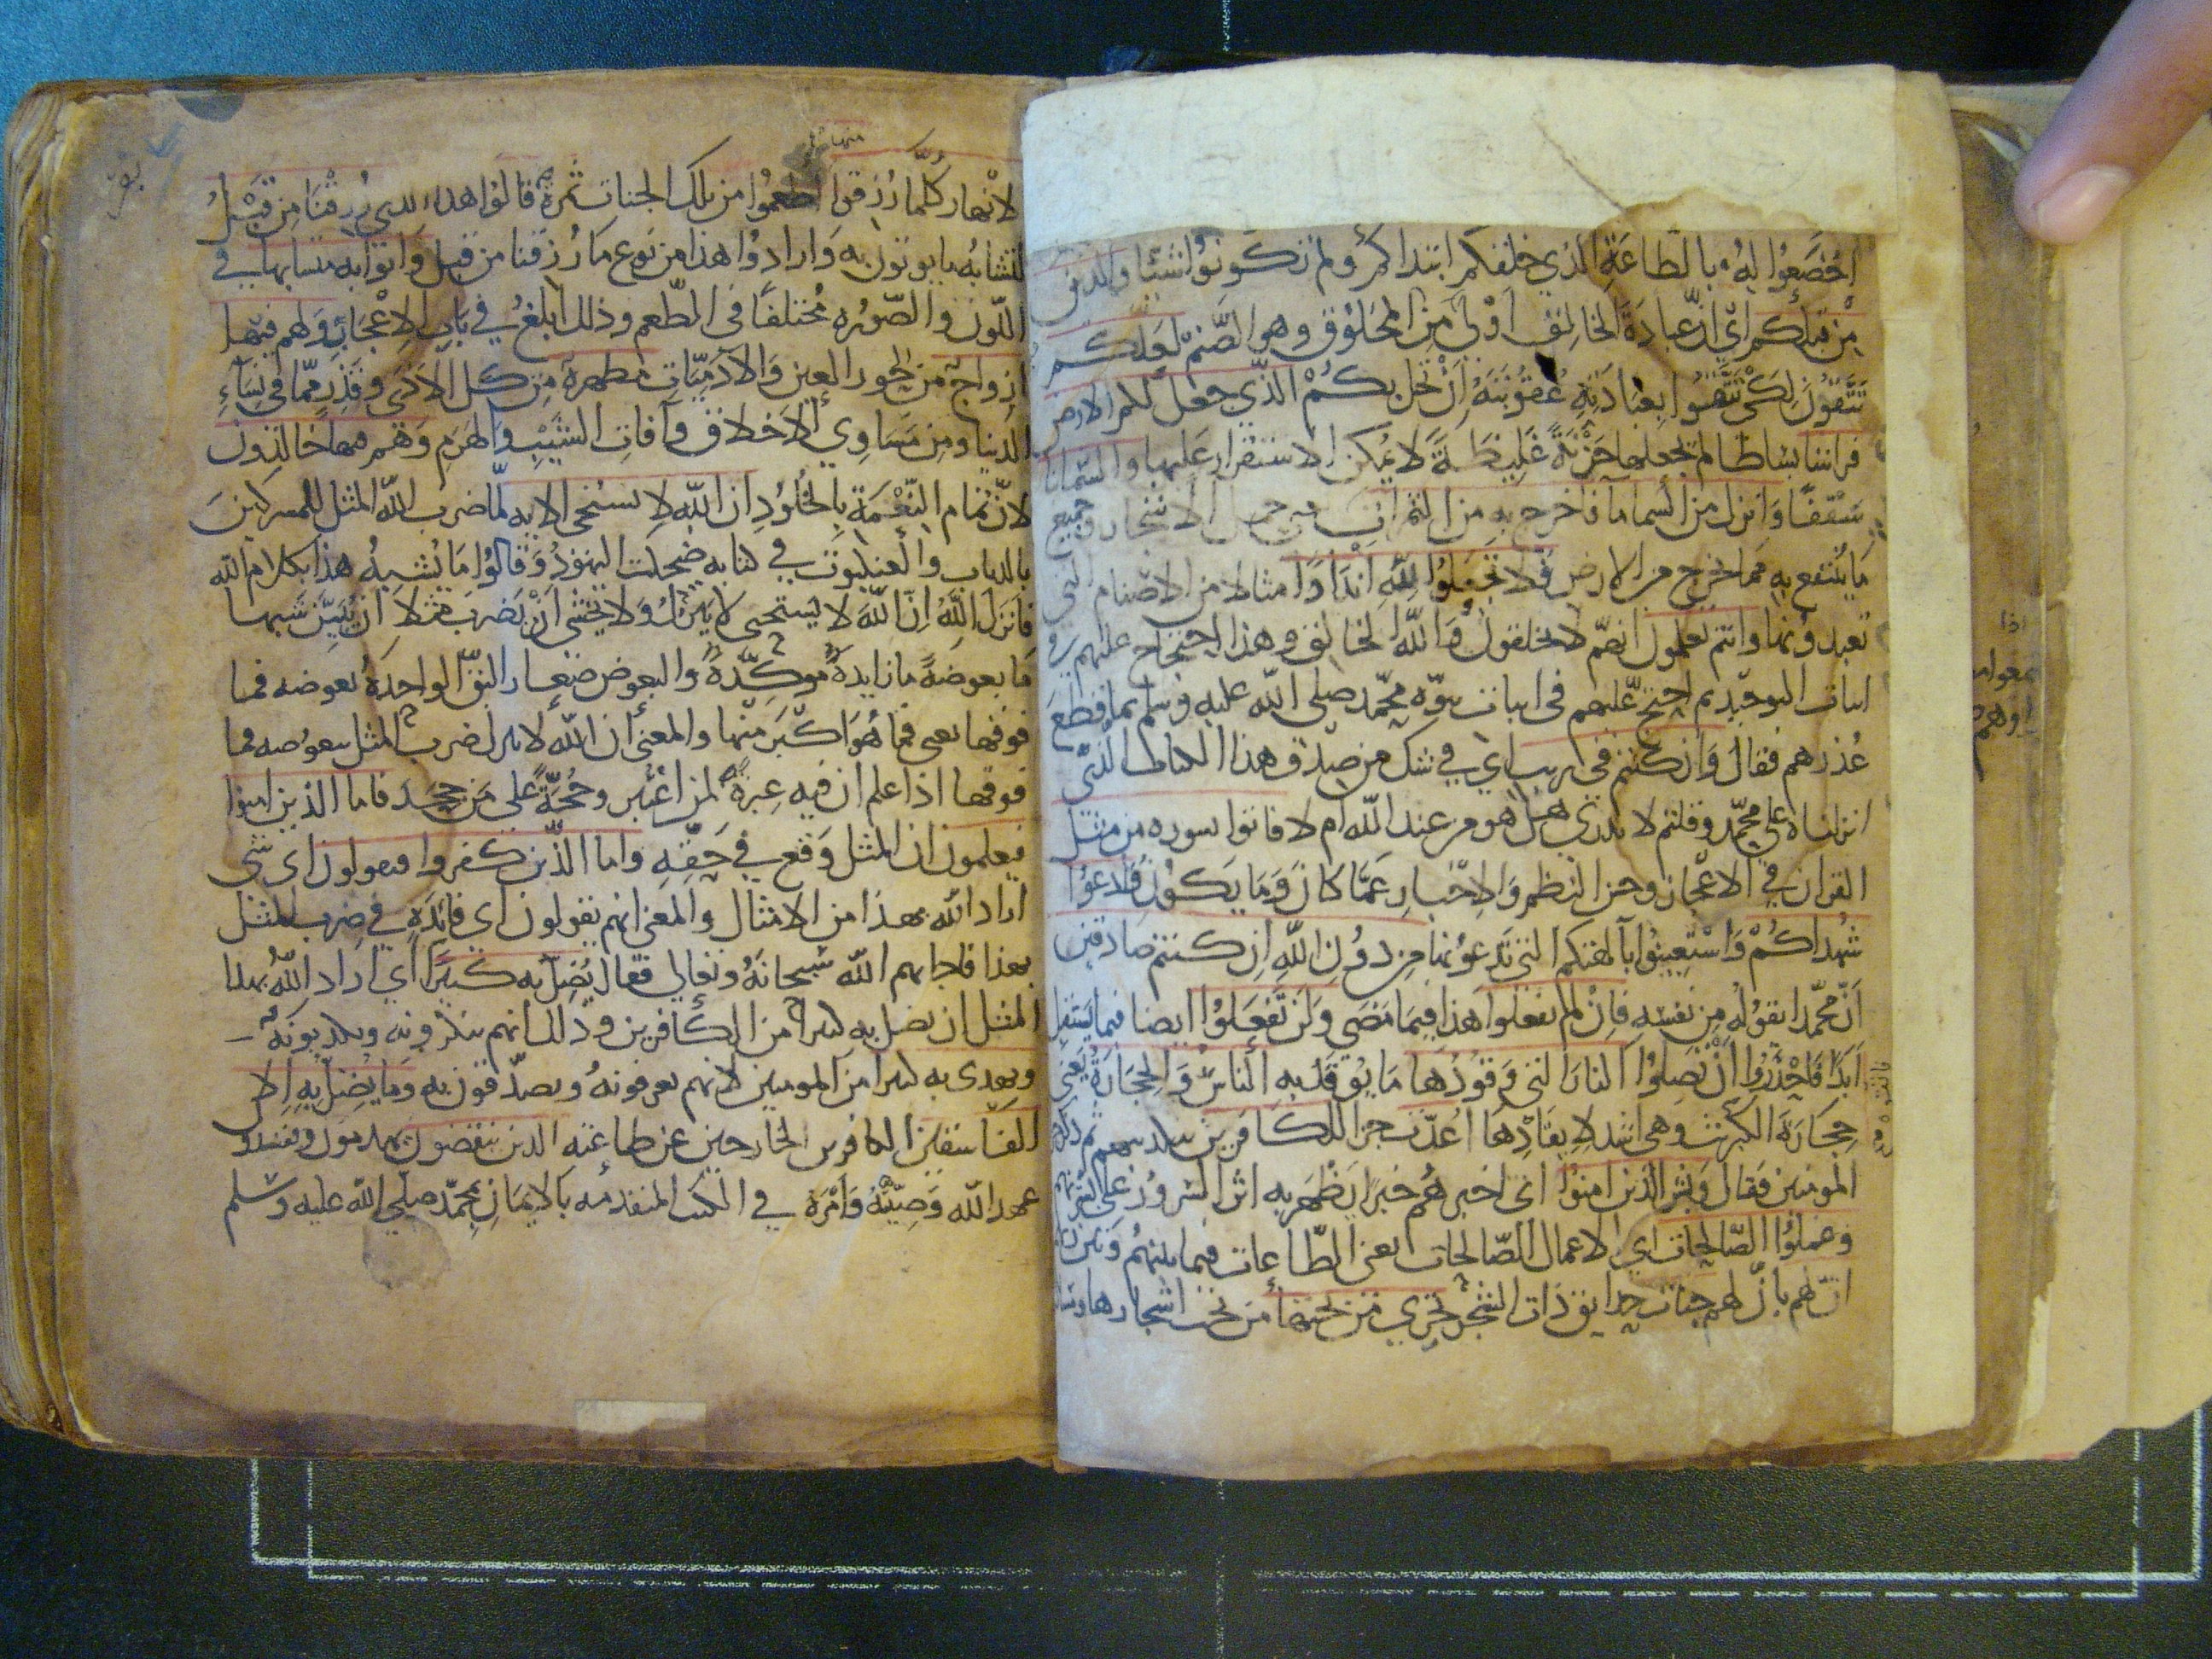 اخضعوا له بالطاعة الذي خلقكم ابتداكم ولم تكونوا شئا والذين
من قبلكم اي ان عبادة الخالق اولى من المخلوق وهو الصنم لعلكم
تتقون لكي تتقوا بعبادته عقوبته ان تحل بكم الذي جعل لكم الارض
فراشا بساطا لم يجعلها حزنة غليظة لا يمكن الاستقرار عليها والسما بنا
سقفا وانزل من السما ما فاخرج به من الثمرات الاشجار وجميع
ما ينتفع به مما يخرج من الارض فلا تجعلوا لله اندادا امثالا من الاصنام التي
تعبدونها وانتم تعلمون انهم لا يخلقون والله الخالق وهذا احتجاج عليهم في
اثبات التوحيد ثم احتج عليهم في اثبات نبوة محمد صلى الله عليه وسلم بما قطع
عذرهم فقال وان كنتم في ريب اي في شك من صدق هذا الكتاب الذي
انزلناه على محمد وقلتم لا ندري هل هو من عند الله ام لا فاتوا بسوره من مثل
القران في الاعجاز وحسن النظم والاخبار عما كان وما يكون وادعوا
شهداكم واستعينوا بآلهتكم التي تدعونها من دون الله ان كنتم صادقين
ان محمدا يقوله من نفسه فان لم تفعلوا هذا فيما مضى ولن تفعلوا ايضا فيما يستقبل
ابدا فاحذروا ان تصلوا النار التي وقودها ما يوقد به الناس والحجارة يعني
حجارة الكبريت وهي اشد لاتقادها اعدت للكافرين بتكذيبهم ثم ذكر
المومنين فقال وبشر الذين امنوا اي اخبرهم خبرا يظهر به اثر السرور على بشرتهم
وعملوا الصالحات اي الاعمال الصالحات يعني الطاعات فيما بينهم وبين ربهم
ان لهم بان لهم جنات حدايق ذات الشجر تجري من تحتها من تحت اشجارها ومساكنها
منها
الانهار كلما رزقوا اطعموا من تلك الجنات ثمرة قالوا هذا الذي رزقنا من قبل
لتشابه ما يوتون به وارادوا هذا من نوع ما رزقنا من قبل واتوا به متشابها في
اللون والصوره مختلفا في الطعم وذلك ابلغ في باب الاعجاز ولهم فيها
ازواج من الحور العين والآدميات مطهرة من كل الاذى وقذر مما في نساء
الدنيا ومن مساوي الاخلاق وآفات الشيب والهرم وهم فيها خالدون
لان تمام النعمة بالخلود ان الله لا يستحي الايه لما ضرب الله المثل للمشركين
بالذباب والعنكبوت في كتابه ضحكت اليهود وقالوا ما يشبه هذا كلام الله
فانزل الله ان الله لا يستحيي لا يترك ولا يخشى ان يضرب مثلا ان يبين شبها
ما بعوضة ما زايدة موكدة والبعوض صغار البق الواحدة بعوضه فما
فوقها يعني فما هو اكبر منها والمعنى ان الله لا يترك ضرب المثل ببعوضه فما
فوقها اذا علم ان فيه عبرة لمن اعتبر وحجة على من جحد فاما الذين امنوا
فيعلمون ان المثل وقع في حقه واما الذين كفروا فيقولون اي شي
اراد الله بهذا من الامثال والمعنى انهم يقولون اي فائدة في ضرب المثل
بهذا فاجابهم الله سبحانه وتعالي فقال يضل به كثيرا اي اراد الله بهذا
المثل ان يضل به كثيرا من الكافرين وذلك انهم ينكرونه ويكذبونه
ويهدى به كثيرا من المومنين لانهم يعرفونه ويصدقون به وما يضل به الا
الفاسقين الكافرين الخارجين عن طاعته الذين ينقضون يهدمون ويفسدون
عهد الله وصيته وامره في الكتب المتقدمه بالايمان بمحمد صلي الله عليه وسلم